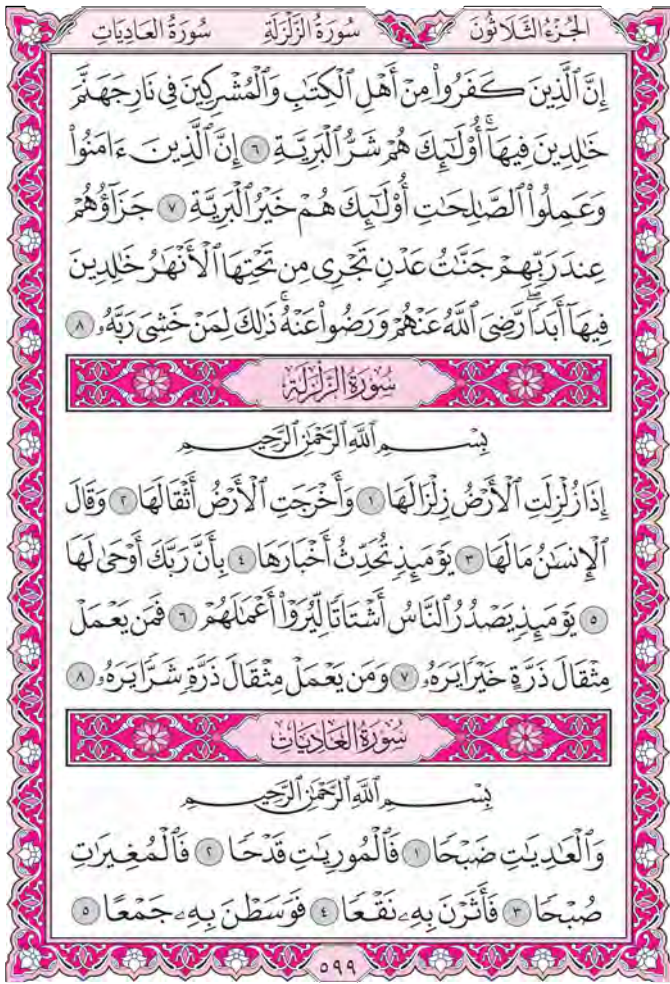 الجُزْءُ الثَّلَاثُونَ سُورَةُ الزَّلْزَلَةِ سُورَةُ العَادِيَاتِ
إِنَّ ٱلَّذِينَ كَفَرُوا۟ مِنْ أَهْلِ ٱلْكِتَٰبِ وَٱلْمُشْرِكِينَ فِى نَارِ جَهَنَّمَ
خَٰلِدِينَ فِيهَآ ۚ أُو۟لَٰٓئِكَ هُمْ شَرُّ ٱلْبَرِيَّةِ ٦ إِنَّ ٱلَّذِينَ ءَامَنُوا۟
وَعَمِلُوا۟ ٱلصَّٰلِحَٰتِ أُو۟لَٰٓئِكَ هُمْ خَيْرُ ٱلْبَرِيَّةِ ٧ جَزَآؤُهُمْ
عِندَ رَبِّهِمْ جَنَّٰتُ عَدْنٍ تَجْرِى مِن تَحْتِهَا ٱلْأَنْهَٰرُ خَٰلِدِينَ
فِيهَآ أَبَدًا ۖ رَّضِىَ ٱللَّهُ عَنْهُمْ وَرَضُوا۟ عَنْهُ ۚ ذَٰلِكَ لِمَنْ خَشِىَ رَبَّهُۥ ٨
سُورَةُ الزَّلْزَلَةِ
بِسْمِ ٱللَّهِ ٱلرَّحْمَٰنِ ٱلرَّحِيمِ
إِذَا زُلْزِلَتِ ٱلْأَرْضُ زِلْزَالَهَا ١ وَأَخْرَجَتِ ٱلْأَرْضُ أَثْقَالَهَا ٢ وَقَالَ
ٱلْإِنسَٰنُ مَا لَهَا ٣ يَوْمَئِذٍ تُحَدِّثُ أَخْبَارَهَا ٤ بِأَنَّ رَبَّكَ أَوْحَىٰ لَهَا
٥ يَوْمَئِذٍ يَصْدُرُ ٱلنَّاسُ أَشْتَاتًا لِّيُرَوْا۟ أَعْمَٰلَهُمْ ٦ فَمَن يَعْمَلْ
مِثْقَالَ ذَرَّةٍ خَيْرًا يَرَهُۥ ٧ وَمَن يَعْمَلْ مِثْقَالَ ذَرَّةٍ شَرًّا يَرَهُۥ ٨
سُورَةُ العَادِيَاتِ
بِسْمِ ٱللَّهِ ٱلرَّحْمَٰنِ ٱلرَّحِيمِ
وَٱلْعَٰدِيَٰتِ ضَبْحًا ١ فَٱلْمُورِيَٰتِ قَدْحًا ٢ فَٱلْمُغِيرَٰتِ
صُبْحًا ٣ فَأَثَرْنَ بِهِۦ نَقْعًا ٤ فَوَسَطْنَ بِهِۦ جَمْعًا ٥
٥٩٩